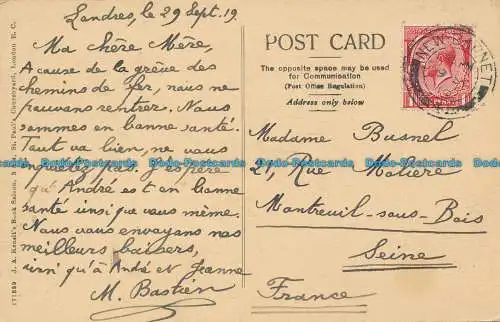 Londres, le 29 Sept. 19.
Ma chère Mère,
A cause de la grève des
chemins de fer, nous ne
pouvons rentrer. Nous
sommes en bonne santé.
Tout va bien, ne vous
inquiétez pas. J'espère
qu'André est en bonne
santé insi que vous même.
Nous vous envoyons nos
meilleurs baisers,
insi qu'à André et Jeanne
M. Bastien
POST CARD
The opposite space may be used
for Communication
(Post Office Regulation)
Address only below
NEW BARNET
Madame Busnel
21, Rue Molière
Montreuil-sous-Bois
Seine
France
171889 J. A. Kensit's Book Saloon, St. Paul's Churchyard, London E. C.
Postcards
Postcards
Postcards